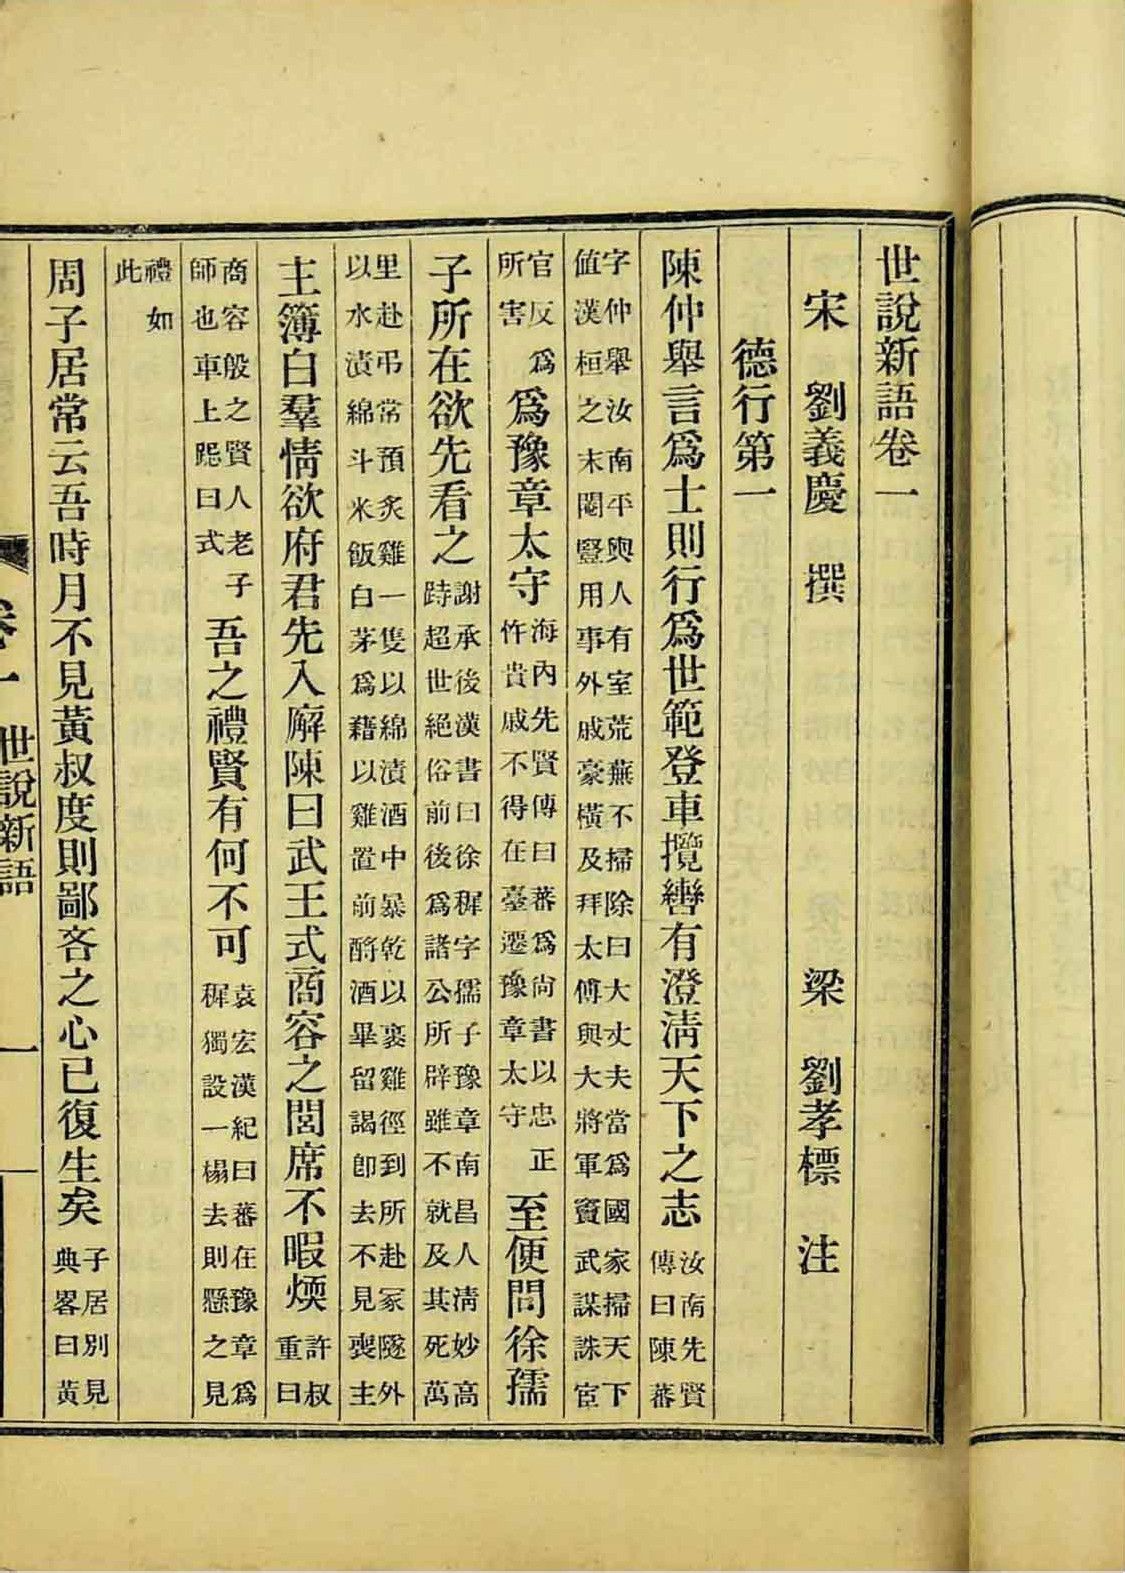 世說新語卷一
宋 劉義慶 撰 梁 劉孝標 注
德行第一
陳仲舉言爲士則行爲世範登車攬轡有澄淸天下之志汝南先賢傳曰陳蕃
字仲舉汝南平輿人有室荒蕪不掃除曰大丈夫當爲國家掃天下值漢桓之末閹豎用事外戚豪橫及拜太傅與大將軍竇武謀誅宦
官反爲所害爲豫章太守海內先賢傳曰蕃爲尚書以忠正忤貴戚不得在臺遷豫章太守至便問徐孺
子所在欲先看之謝承後漢書曰徐穉字孺子豫章南昌人淸妙高跱超世絕俗前後爲諸公所辟雖不就及其死萬
里赴吊常預炙雞一隻以綿漬酒中暴乾以裹雞徑到所赴冢隧外以水漬綿斗米飯白茅爲藉以雞置前酹酒畢留謁卽去不見喪主
主簿白羣情欲府君先入廨陳曰武王式商容之閭席不暇煗許叔重曰
商容殷之賢人老子師也車上跽曰式吾之禮賢有何不可袁宏漢紀曰蕃在豫章爲穉獨設一榻去則懸之見
禮如此
周子居常云吾時月不見黃叔度則鄙吝之心已復生矣子居別見典畧曰黃
卷一 世說新語 一